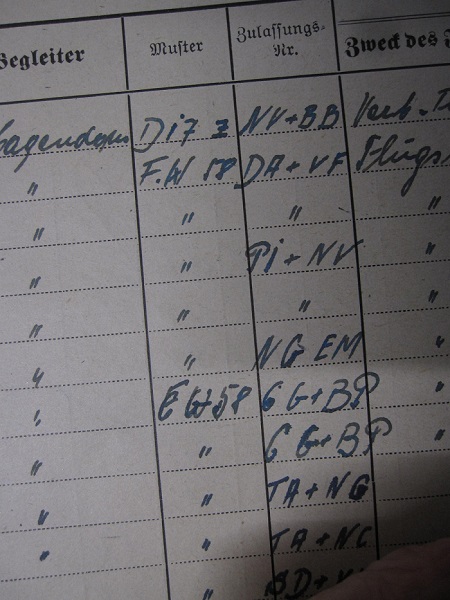 Begleiter Muster Zulassungs-Nr. Zweck des
Di7 z NV+BB
F.W 58 DA+VF Flugs
" " " "
" " Pi+NV "
" " " "
" " NG EM "
" 58 CG+BP "
" " CG+BP "
" " TA+NG
" " TA+NG
" BD+